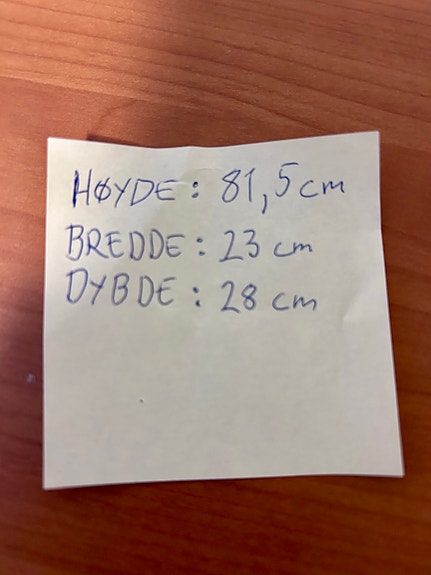 HØYDE: 81,5 cm
BREDDE: 23 cm
DYBDE: 28 cm